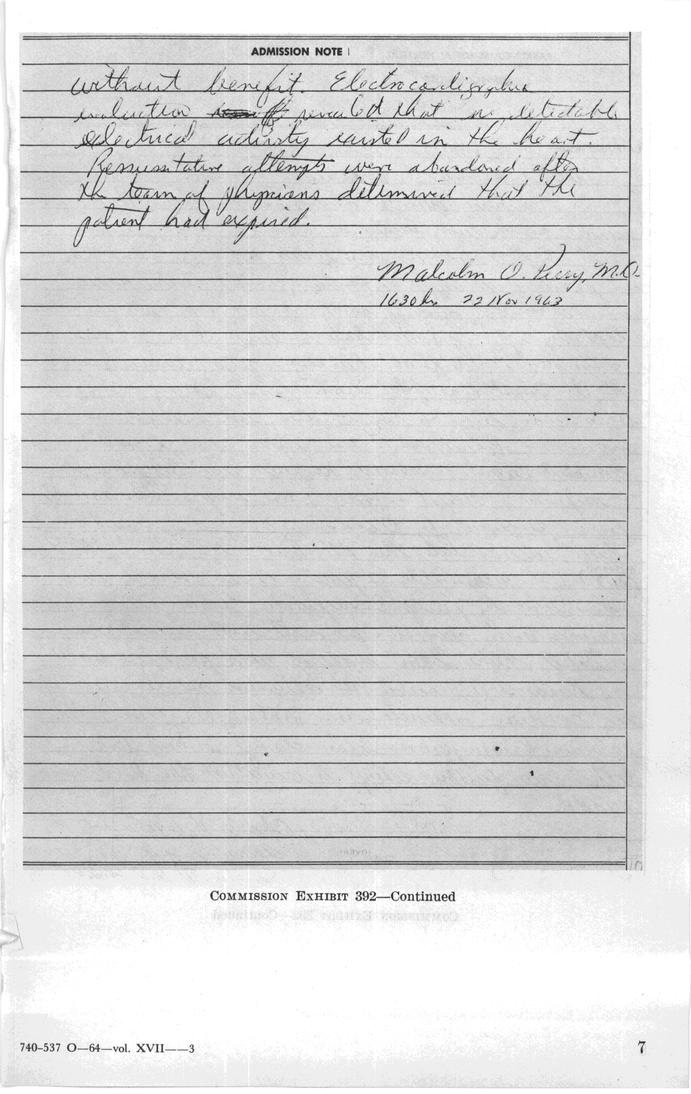 ADMISSION NOTE
without benefit. Electrocardigraphic
evaluation revealed that no detectable
electrical activity existed in the heart.
Resusitative attempts were abandoned after
the team of physicians determined that the
patient had expired.
Malcolm O. Perry, M.D.
1630 hr 22 Nov 1963
COMMISSION EXHIBIT 392—Continued
740-537 O—64—vol. XVII——3
7